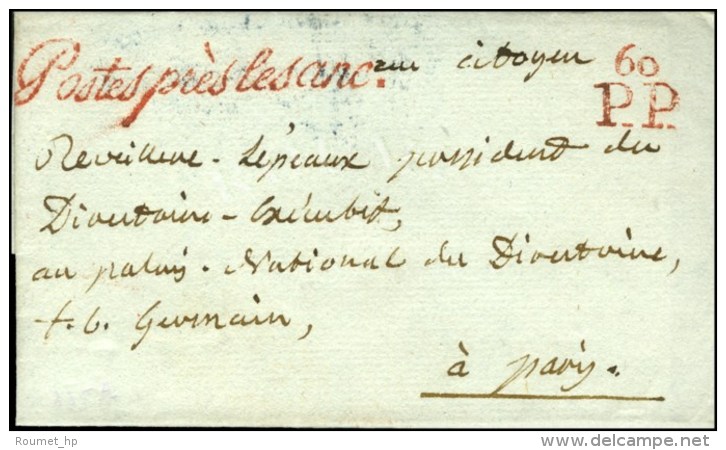 Postes près les anc. au citoyen
60
P.P.
Reveillere-Lépeaux president du
Directoire-Exécutif,
au palais-National du Directoire,
f.b. Germain,
à paris.
Roumet_hp
www.delcampe.net